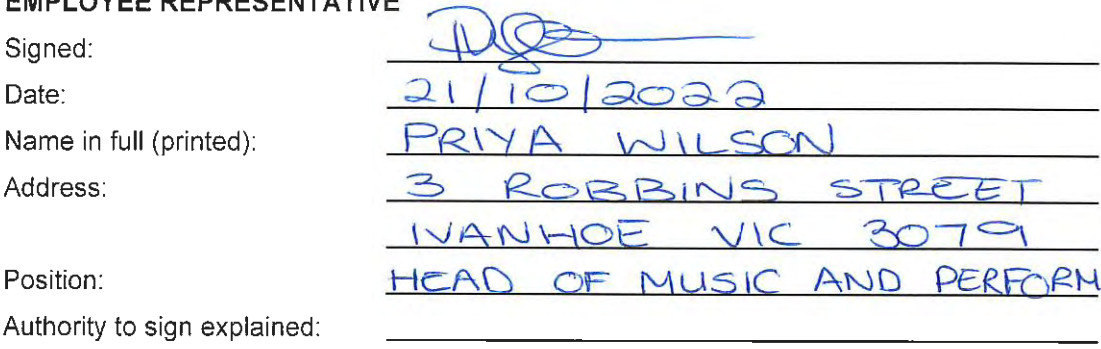 EMPLOYEE REPRESENTATIVE
Signed:
Date: 21/10/2022
Name in full (printed): PRIYA WILSON
Address: 3 ROBBINS STREET
IVANHOE VIC 3079
Position: HEAD OF MUSIC AND PERFORM
Authority to sign explained: